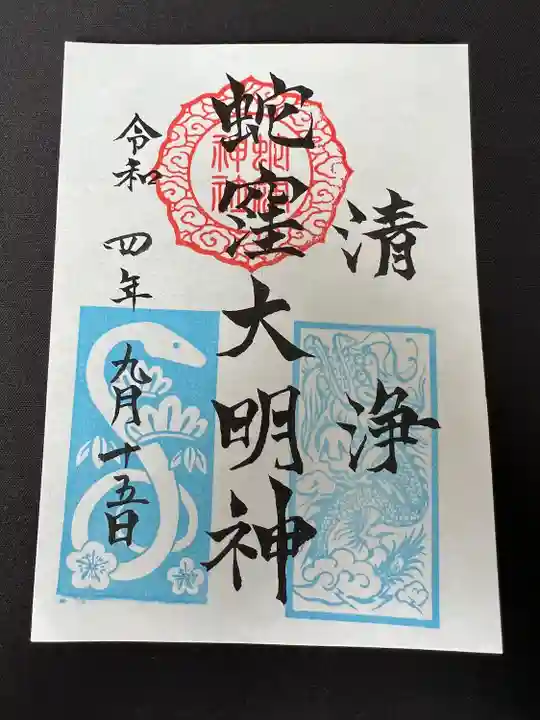 清浄
蛇窪大明神
令和四年九月十五日
蛇窪
神社